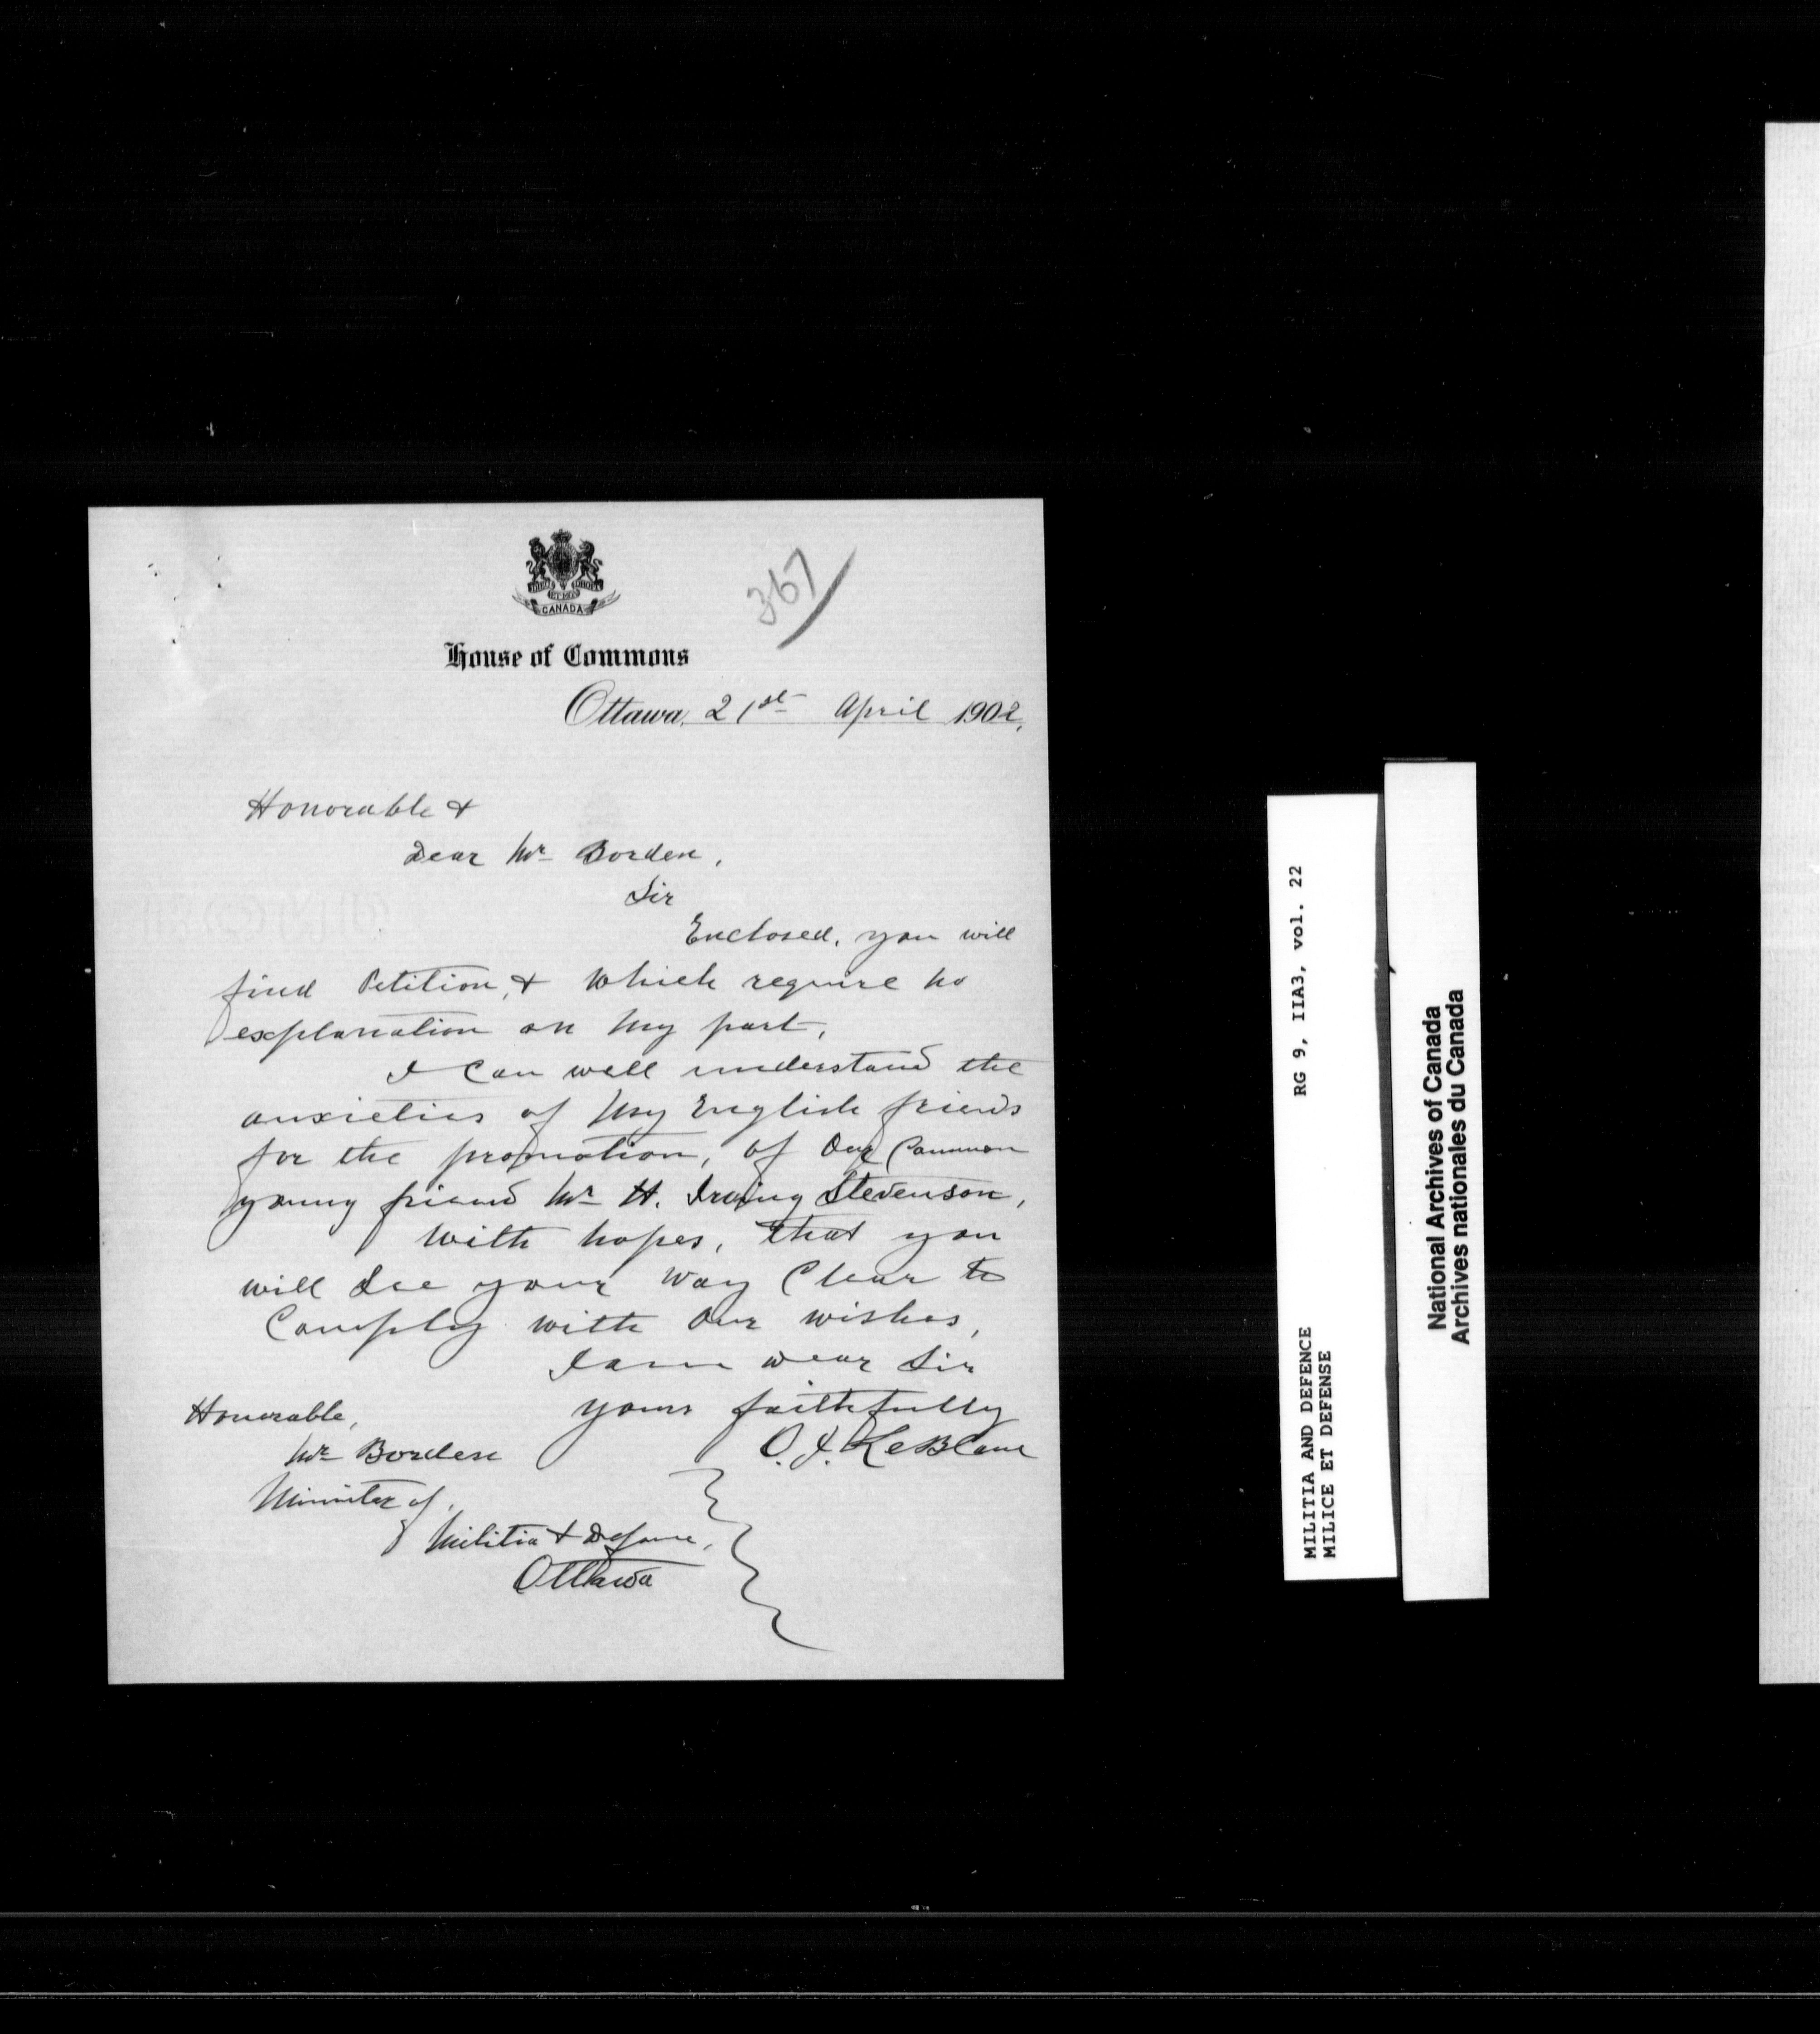 367
CANADA
House of Commons
Ottawa, 21st April 1902,
Honorable &
Dear Mr Borden,
Sir
Enclosed, you will
find Petition, & which require no
explanation on my part,
I Can well understand the
anxieties of my English friends
for the promotion, of Our Common
young friend Mr H. Irving Stevenson,
With hopes, that you
will See your way Clear to
Comply with Our wishes,
I am Dear Sir
yours faithfully
O. J. LeBlanc
Honorable,
Mr Borden
Minister of,
Militia & Defence,
Ottawa
MILITIA AND DEFENCE RG 9, IIA3, vol. 22
MILICE ET DEFENSE
National Archives of Canada
Archives nationales du Canada